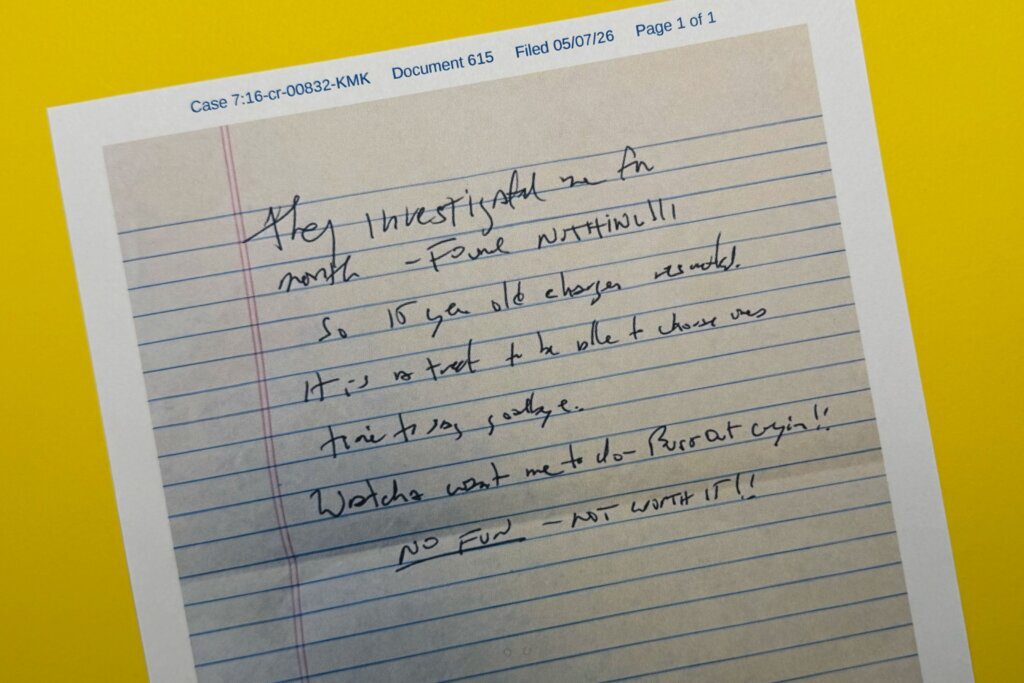 Case 7:16-cr-00832-KMK Document 615 Filed 05/07/26 Page 1 of 1
They investigated me for
month - Found NOTHING!!!
So 15 year old charges resulted.
It is a treat to be able to choose ones
time to say goodbye.
Watcha want me to do - Burst out cryin!!
NO FUN - NOT WORTH IT!!